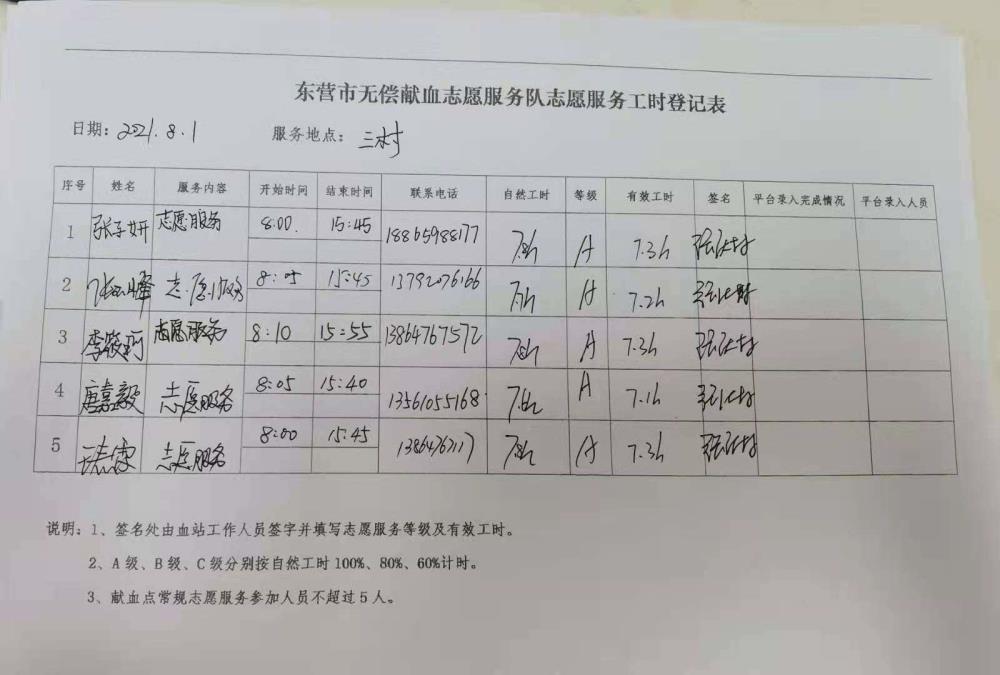 东营市无偿献血志愿服务队志愿服务工时登记表
日期：2021.8.1 服务地点：三村
序号 姓名 服务内容 开始时间 结束时间 联系电话 自然工时 等级 有效工时 签名 平台录入完成情况 平台录入人员
1 张子妍 志愿服务 8:00. 15:45 18865988177 A 7.3h
2 志愿服务 8:05 15:45 13792076166 A 7.2h
3 李筱珂 志愿服务 8:10 15:55 13864767572 A 7.3h
4 唐嘉毅 志愿服务 8:05 15:40 13561055168 A 7.1h
5 志愿服务 8:00 15:45 A 7.3h
说明：1、签名处由血站工作人员签字并填写志愿服务等级及有效工时。
2、A级、B级、C级分别按自然工时100%、80%、60%计时。
3、献血点常规志愿服务参加人员不超过5人。